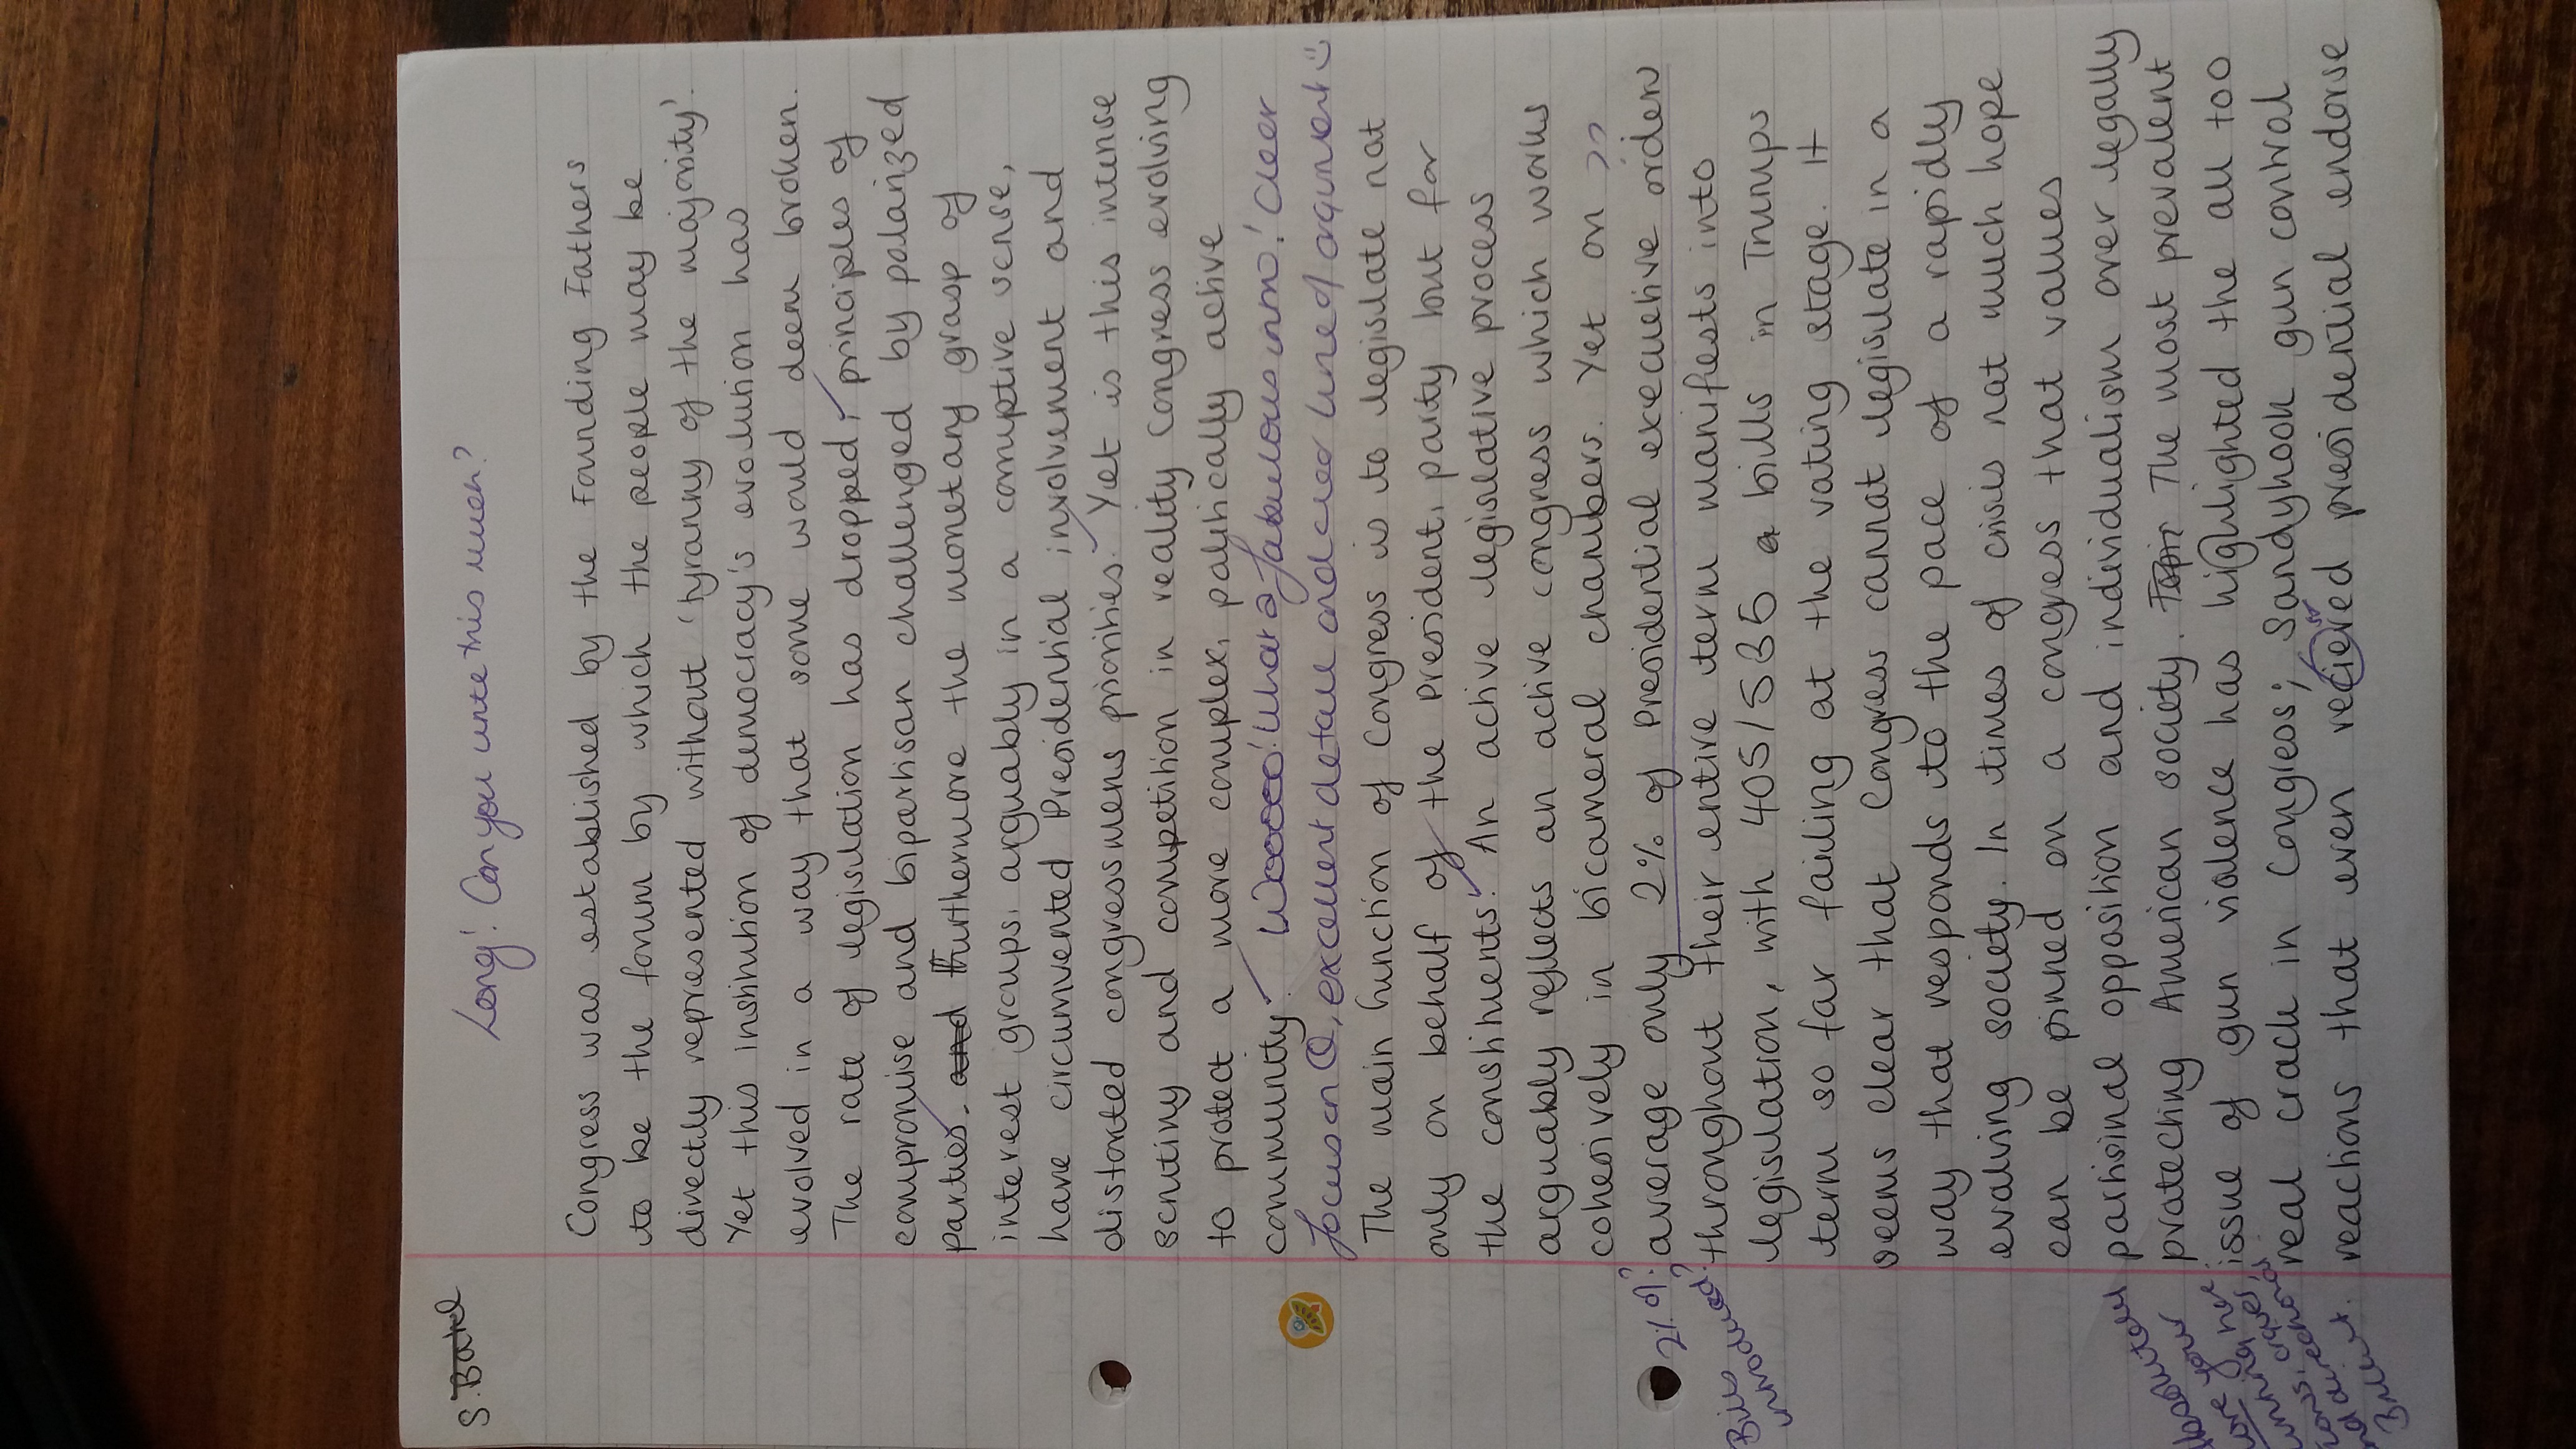 S. Batel
Long! Can you write this much?
Congress was established by the Founding Fathers
to be the forum by which the people may be
directly represented without 'tyranny of the majority'.
Yet this institution of democracy's evolution has
evolved in a way that some would deem broken.
The rate of legislation has dropped, principles of
compromise and bipartisan challenged by polarized
parties, and furthermore the monetary grasp of
interest groups, arguably in a corruptive sense,
have circumvented Presidential involvement and
distorted congressmens priorities. Yet is this intense
scrutiny and competition in reality Congress evolving
to protect a more complex, politically active
community. Woooo! What a fabulous intro! Clear
focus on Q, excellent detail and clear line of argument :)
The main function of Congress is to legislate not
only on behalf of the President, party but for
the constituents. An active legislative process
arguably reflects an active congress which works
cohesively in bicameral chambers. Yet on ??
2% of? average only 2% of presidential executive orders
Bills introduced? throughout their entire term manifests into
legislation, with 405/535 a bills in Trumps
term so far failing at the voting stage. It
seems clear that Congress cannot legislate in a
way that responds to the pace of a rapidly
evolving society. In times of crisis not much hope
can be pinned on a congress that values
partisinal opposition and individualism over legally
protecting American society. The most prevalent
issue of gun violence has highlighted the all too
real crack in Congress; Sandyhook gun control
reactions that even recieved presidential endorse
Brilliant.